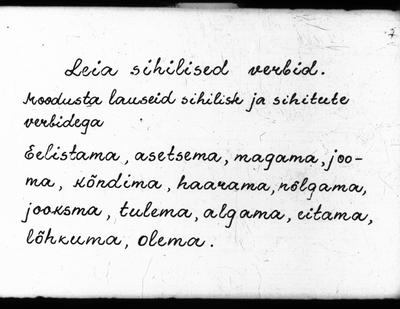 Leia sihilised verbid.
Moodusta lauseid sihilisk ja sihitute
verbidega
Eelistama, asetsema, magama, joo-
ma, kõndima, haarama, nõlgama,
jooksma, tulema, algama, eitama,
lõhkuma, olema.
7